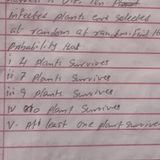 infected plants are selected
at random at random. find the
probability that
i 4 plants survives
ii 7 plants survives
iii 9 plants survive
iv no plant survives
v. at least one plant survives